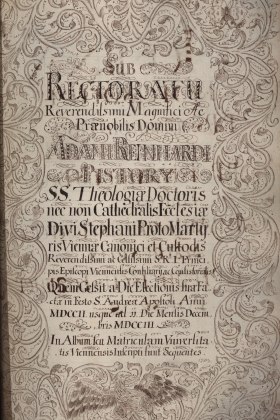 SUB
RECTORATU
Reverendissimi Magnifici Ac
Prænobilis Domini
ADAMI REINHARDI
PISTORY
SS. Theologiæ Doctoris
nec non Cathedralis Ecclesiæ
Divi Stephani Proto Marty
ris Viennæ Canonici et Custodis
Reverendissimi ac Celsissimi S. R. I. Princi
pis Episcopi Viennensis Consiliarij, ac
Quem Gessit a Die Electionis suæ Fa
ctæ in Festo S. Andreæ Apostoli Anni
MDCCII usque ad Diem Mensis Decem
bris MDCCIII.
In Album seu Matriculam Universita
tis Viennensis Inscripti sunt Sequentes